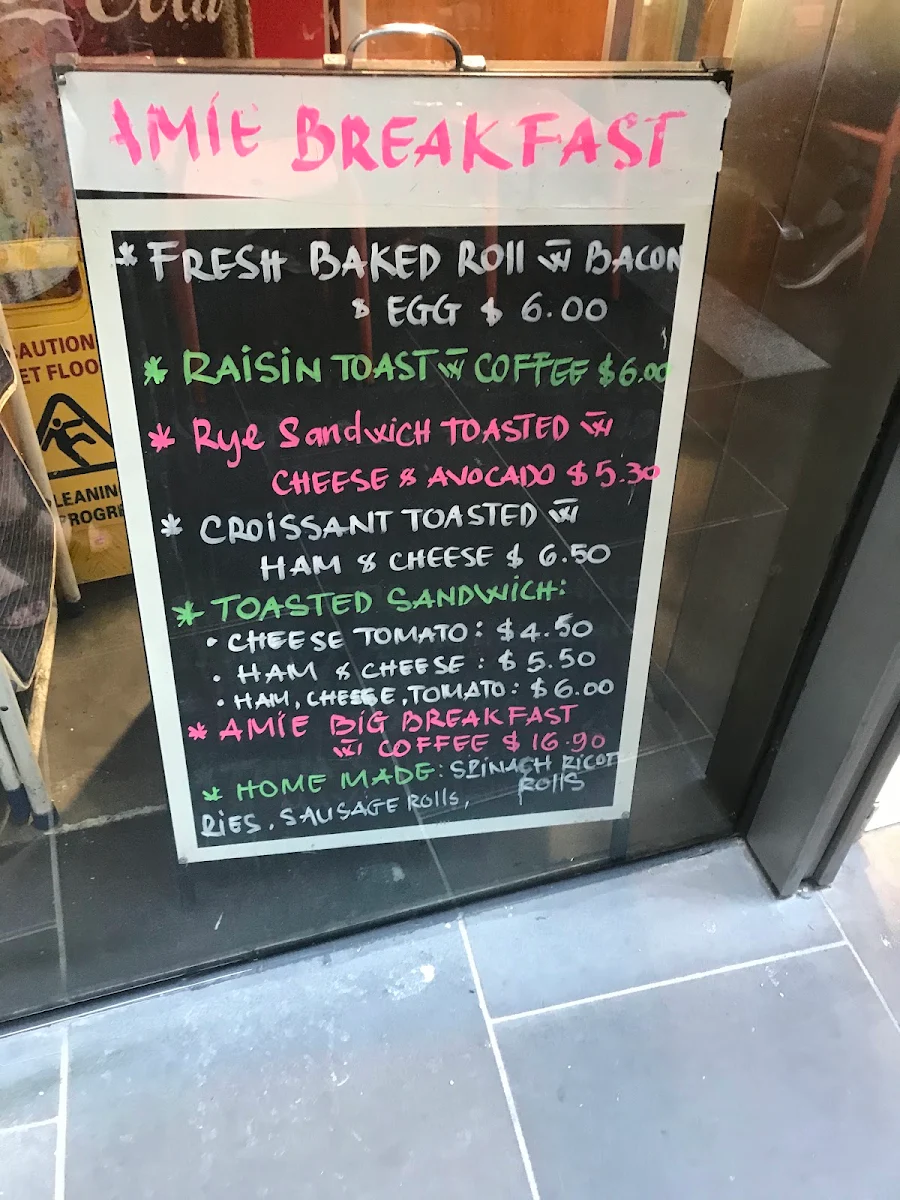 Cola
AMIE BREAKFAST
* FRESH BAKED ROLL W BACON
& EGG $ 6.00
* RAISIN TOAST W COFFEE $6.00
* Rye Sandwich TOASTED W
CHEESE & AVOCADO $5.30
* CROISSANT TOASTED W
HAM & CHEESE $ 6.50
* TOASTED SANDWICH:
• CHEESE TOMATO: $4.50
• HAM & CHEESE: $5.50
• HAM, CHEESE, TOMATO: $6.00
* AMIE BIG BREAKFAST
W COFFEE $16.90
* HOME MADE: SPINACH RICOT
ROLLS
PIES, SAUSAGE ROLLS,
CAUTION
ET FLOO
LEANIN
PROGRE